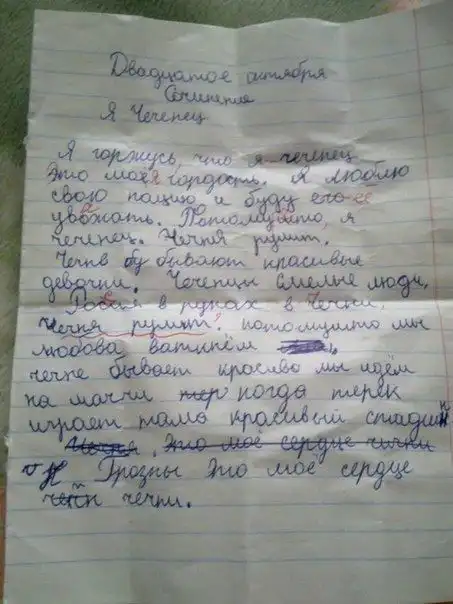 Двадцатое октября
Сочинение
Я Чеченец
Я горжусь, что я чеченец
Это моя гордость. Я люблю
свою нацию и буду его её
уважать. Потомушто, я
чеченец. Чечня рулит.
Чечне бывают красивые
девочки. Чеченцы смелые люди,
Россия в руках в Чечни,
Чечня рулит, потомушто мы
любова
чечне бывает красиво мы идём
на матчи когда терек
играет тама красивый стадион
это моё сердце чечни
Грозны это моё сердце
чечни.